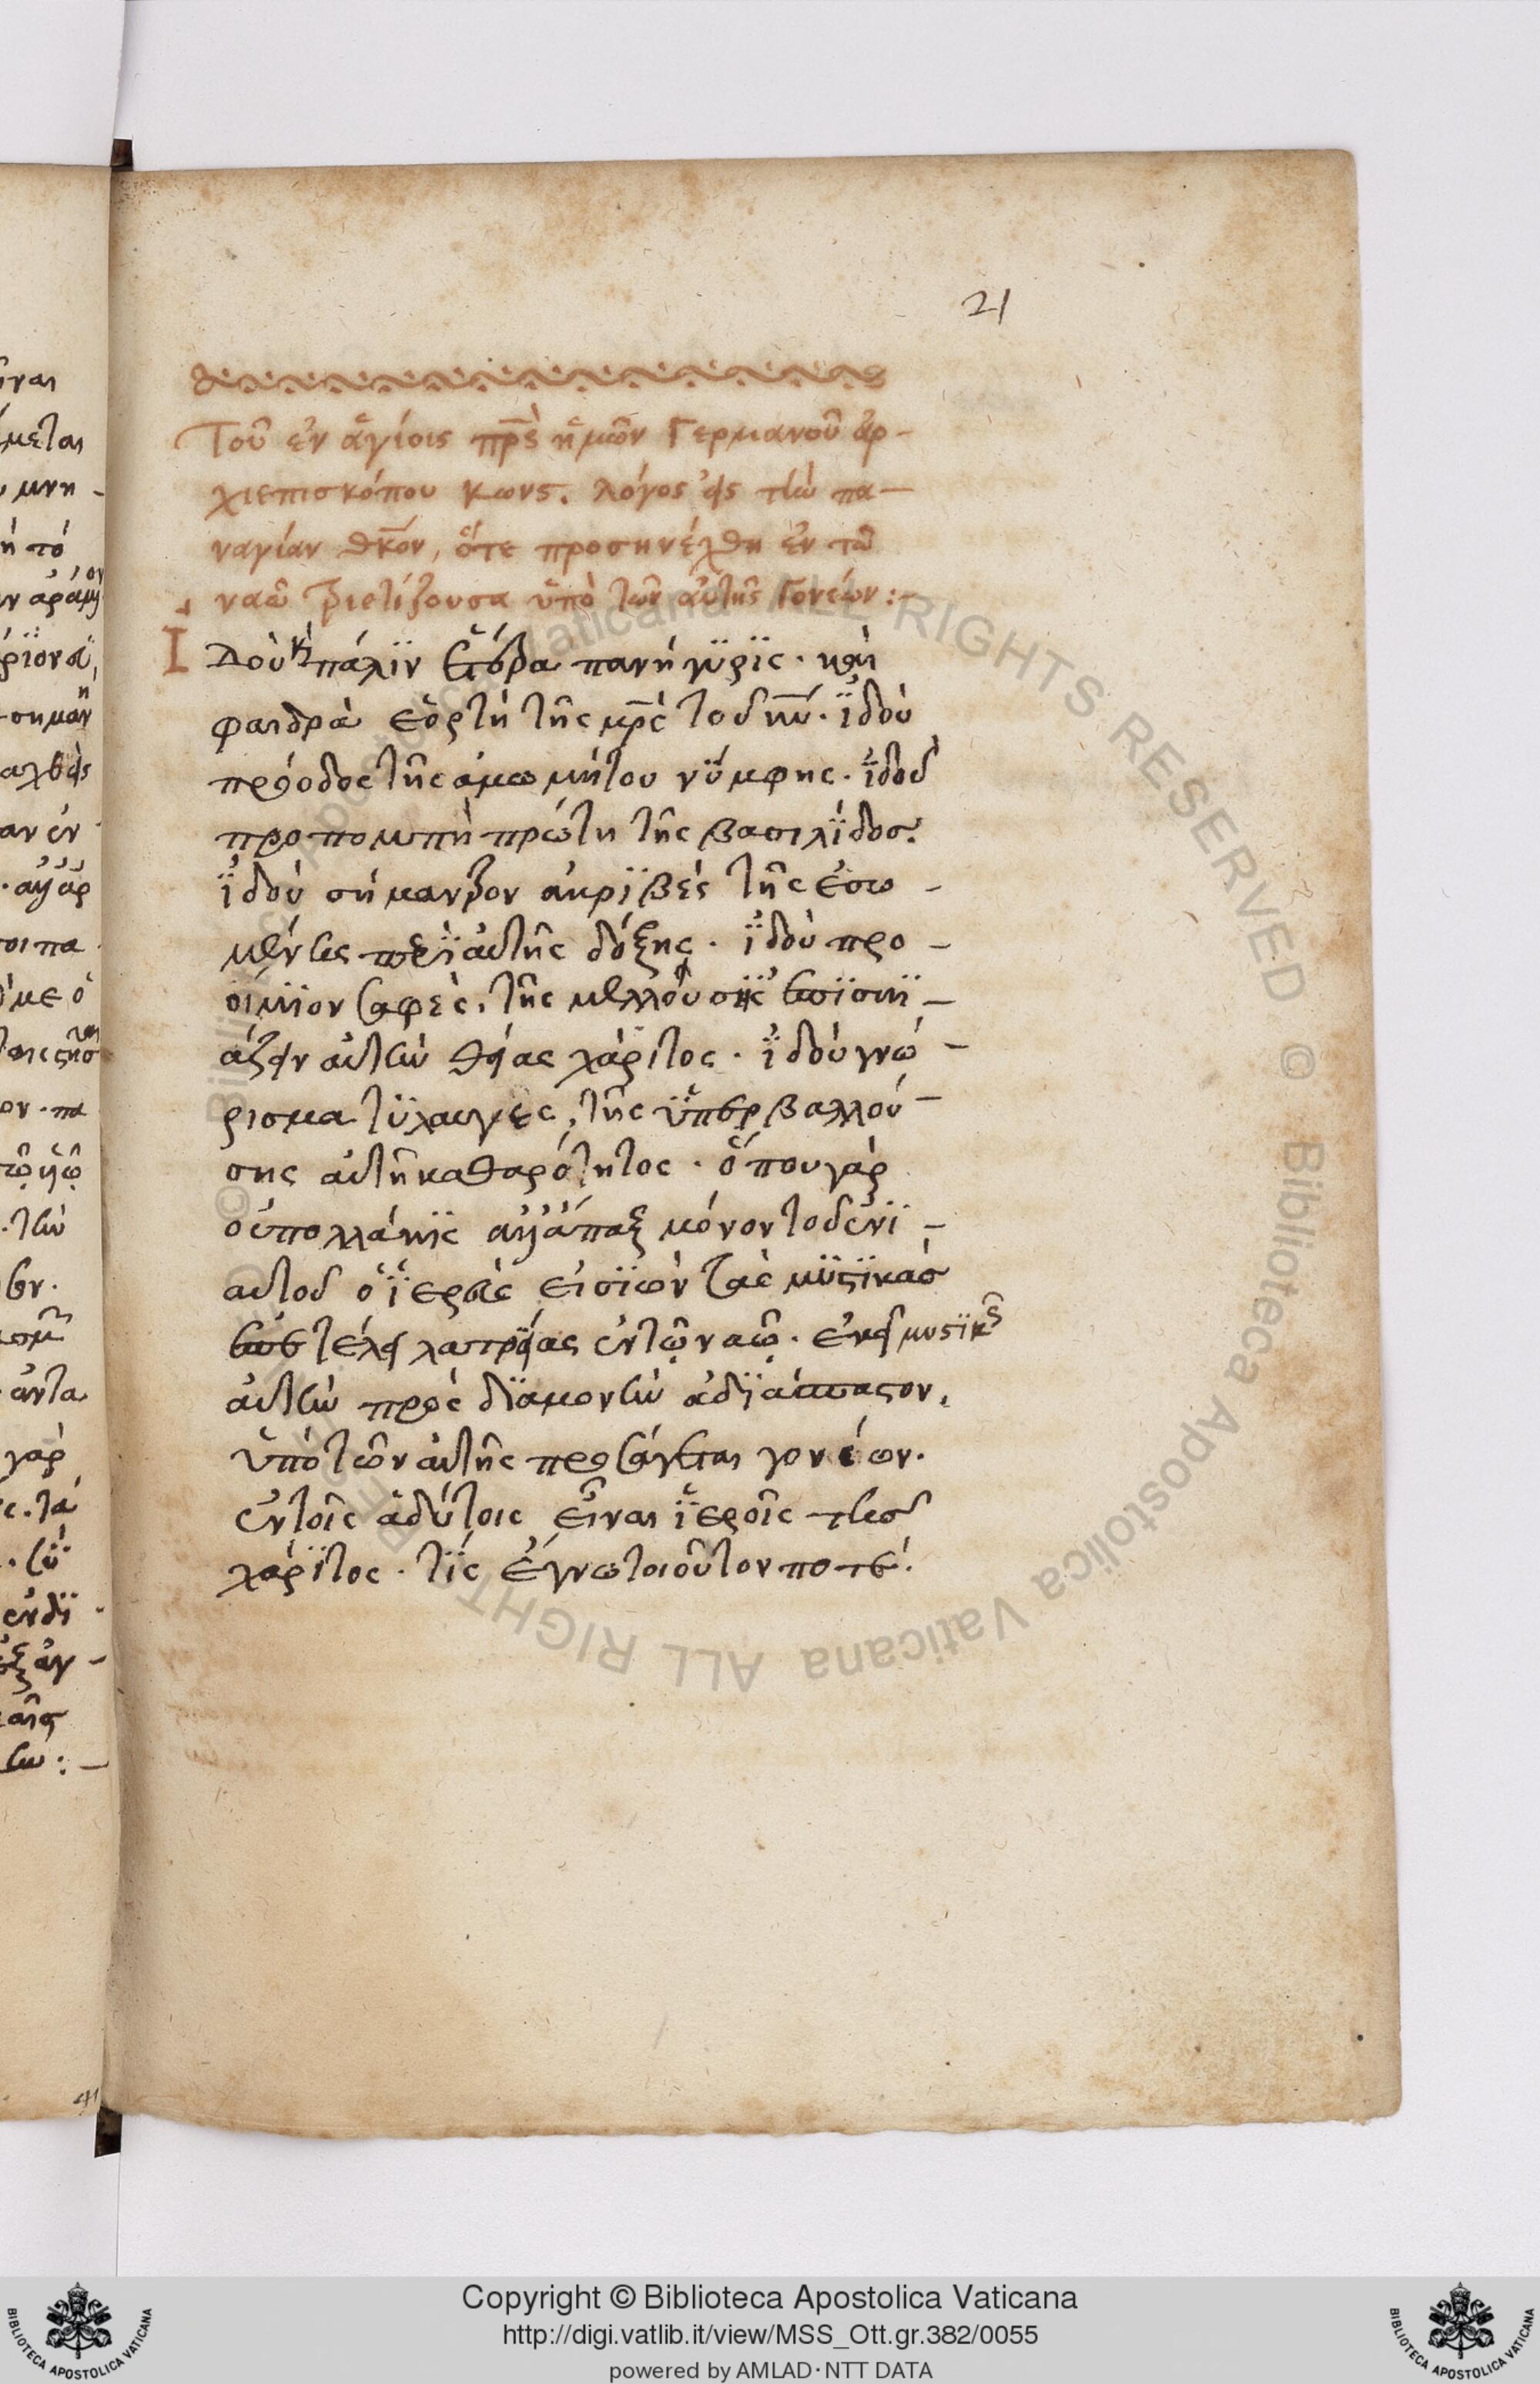 21
Τοῦ ἐν ἁγίοις πρ̅ς ἡμῶν Γερμανοῦ ἀρ-
χιεπισκόπου Κωνς. λόγος εἰς τὴν πα-
ναγίαν θκ̅ον, ὅτε προσηνέχθη ἐν τῶ
ναῶ τριετίζουσα ὑπὸ τῶν αὐτῆς Γονέων:-
Ἰδοὺ κ πάλϊν ἑτέρα πανήγϋρϊς · καὶ
φαιδρὰ ἑορτὴ τῆς μρ̅ς τοῦ κυ̅ · ἰδοὺ
πρόοδος τῆς ἀμωμήτου νύμφης · ἰδοὺ
προπομπὴ πρώτη τῆς βασιλΐδος.
ἰδοὺ σήμαντρον ἀκριβὲς τῆς ἐσο-
μένης περὶ αὐτῆς δόξης · ἰδοὺ προ-
οίμϊον σαφὲς, τῆς μελλούσης ἐπϊσκϊ-
άζειν αὐτὴν θείας χάριτος · ἰδοὺ γνώ-
ρισμα τϋλαυγὲς, τῆς ὑπερβαλλού-
σης αὐτῆ καθαρότητος · ὅπου γὰρ
οὐ πολλάκϊς ἀλλ' ἅπαξ μόνον τοῦ ἐνϊ-
αυτοῦ ὁ ἱερεὺς εἰσϊὼν τὰς μϋςϊκὰς
ἀποτελεῖ λατρείας ἐν τῶ ναῶ · ἐκεῖ μυςϊκῶς
αὐτὴν πρὸς δϊαμονὴν ἀδϊάσπαςον,
ὑπὸ τῶν αὐτῆς προσάγεται γονέων.
ἐν τοῖς ἀδύτοις εἶναι ἱεροῖς τῆς
χάρϊτος · τΐς ἔγνω τοιοῦτον ποτέ.
Copyright © Biblioteca Apostolica Vaticana
http://digi.vatlib.it/view/MSS_Ott.gr.382/0055
powered by AMLAD·NTT DATA